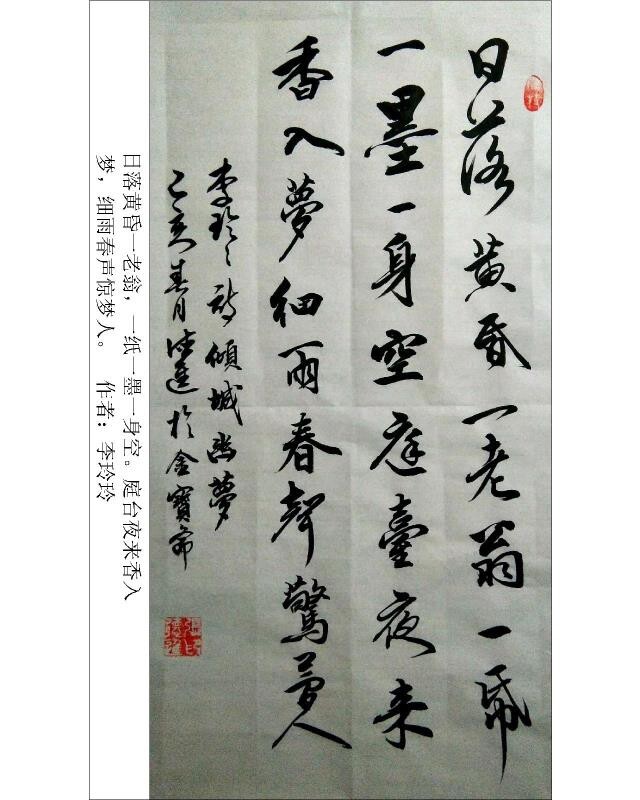 日落黄昏一老翁一帋
一墨一身空庭臺夜来
香入夢细雨春聲驚夢人
李玲々诗傾城幽夢
己亥春月於金寶
日落黄昏一老翁，一纸一墨一身空。庭台夜来香入
梦，细雨春声惊梦人。 作者：李玲玲